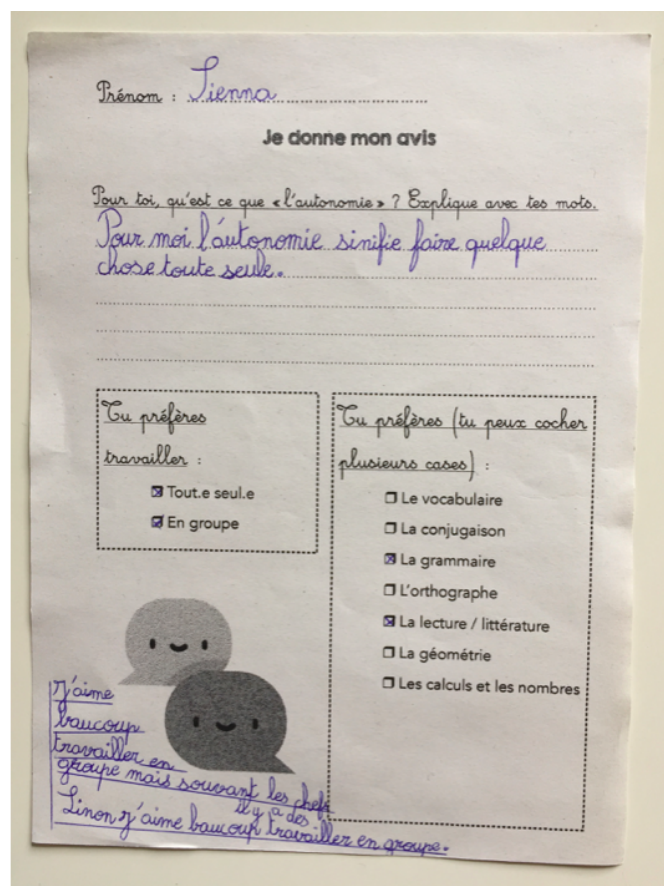 Prénom : Sienna
Je donne mon avis
Pour toi, qu'est ce que «l'autonomie» ? Explique avec tes mots.
Pour moi l'autonomie sinifie faire quelque
chose toute seule.
Tu préfères
travailler :
Tout.e seul.e
En groupe
Tu préfères (tu peux cocher
plusieurs cases) :
Le vocabulaire
La conjugaison
La grammaire
L'orthographe
La lecture / littérature
La géométrie
Les calculs et les nombres
J'aime
baucoup
travailler en
groupe mais souvant les chefs
il y a des
Sinon j'aime baucoup travailler en groupe.